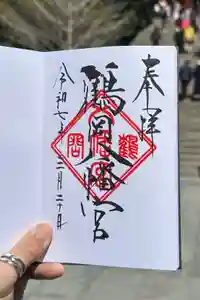 奉拝
鶴岡八幡宮
令和七年三月二十日